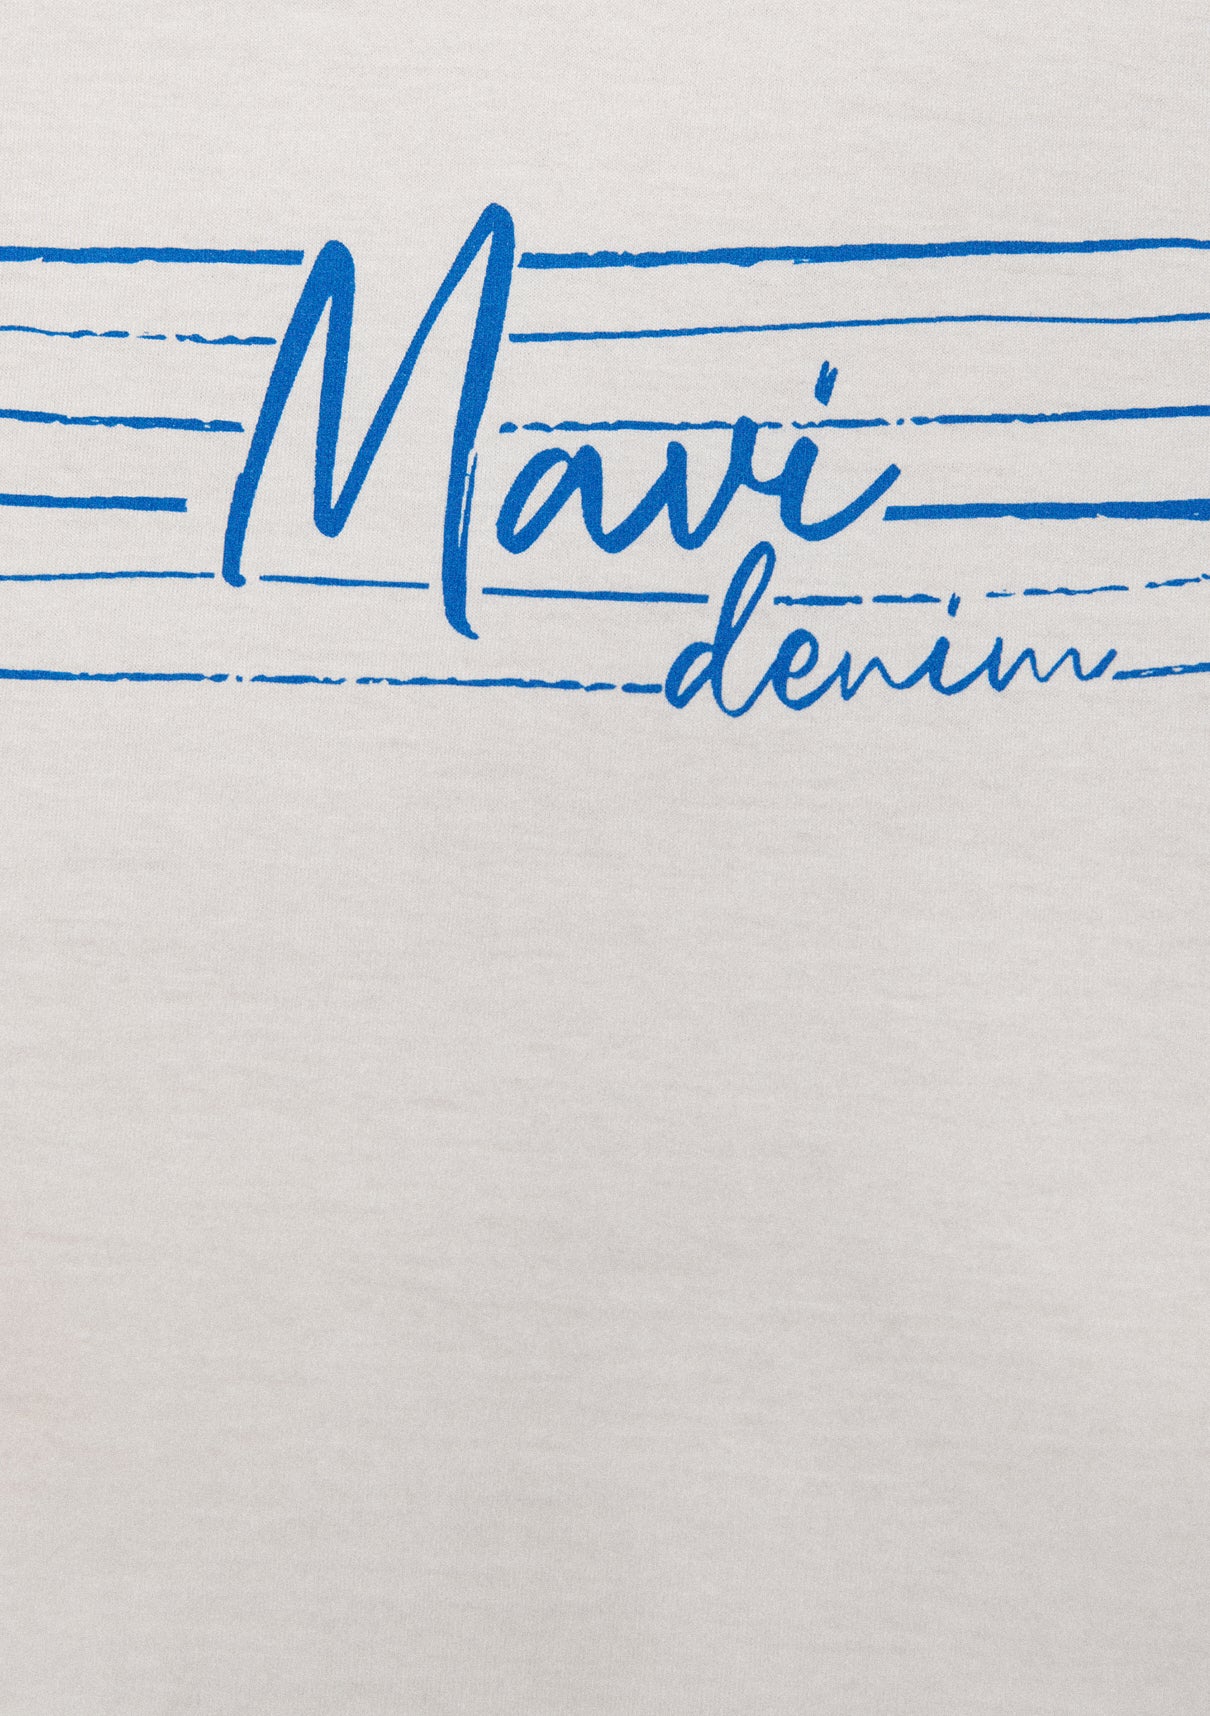 Mavi
denim